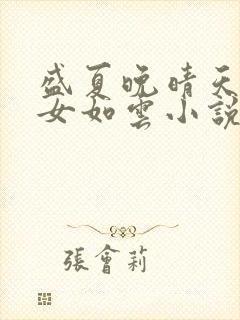 盛夏晚晴天
女如雲小說
張會莉